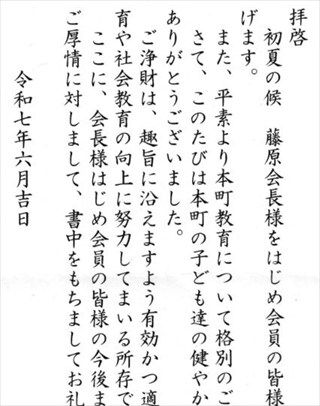 拝啓
初夏の候　藤原会長様をはじめ会員の皆様
げます。
また、平素より本町教育について格別のご
さて、このたびは本町の子ども達の健やか
ありがとうございました。
ご浄財は、趣旨に沿えますよう有効かつ適
育や社会教育の向上に努力してまいる所存で
ここに、会長様はじめ会員の皆様の今後ま
ご厚情に対しまして、書中をもちましてお礼
令和七年六月吉日